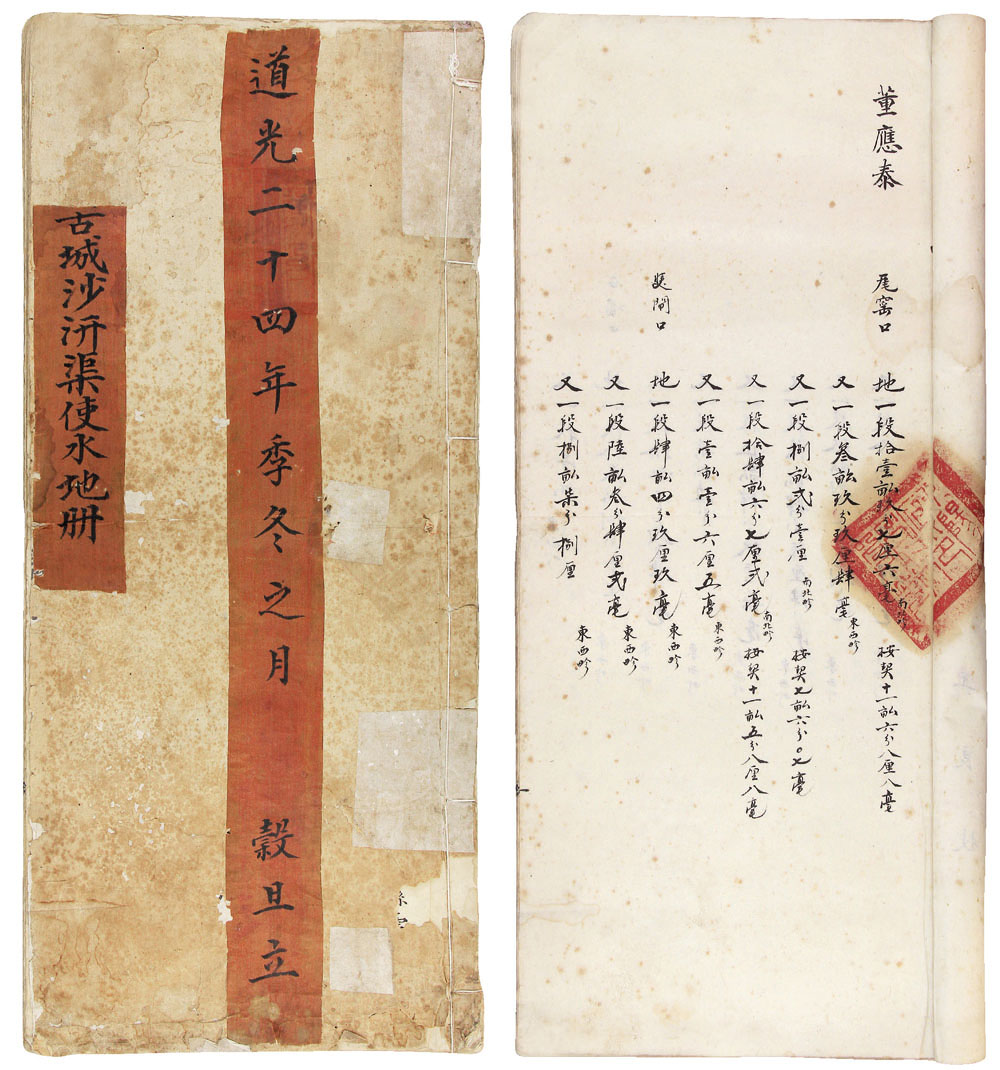 道光二十四年季冬之月 穀旦立
古城沙汧渠使水地册
董應泰
尾窰口 地一段拾壹畝玖分七厘六毫 南北畛 按契十一畝六分八厘八毫
又一段叁畝玖分玖厘肆毫 東西畛
又一段捌畝弍分壹厘 南北畛 按契七畝六分〇七毫
又一段拾肆畝六分七厘弍毫 南北畛 按契十一畝五分八厘八毫
又一段壹畝壹分六厘五毫 東西畛
間口 地一段肆畝四分玖厘玖毫 東西畛
又一段陸畝叁分肆厘弍毫 東西畛
又一段捌畝柒分捌厘 東西畛